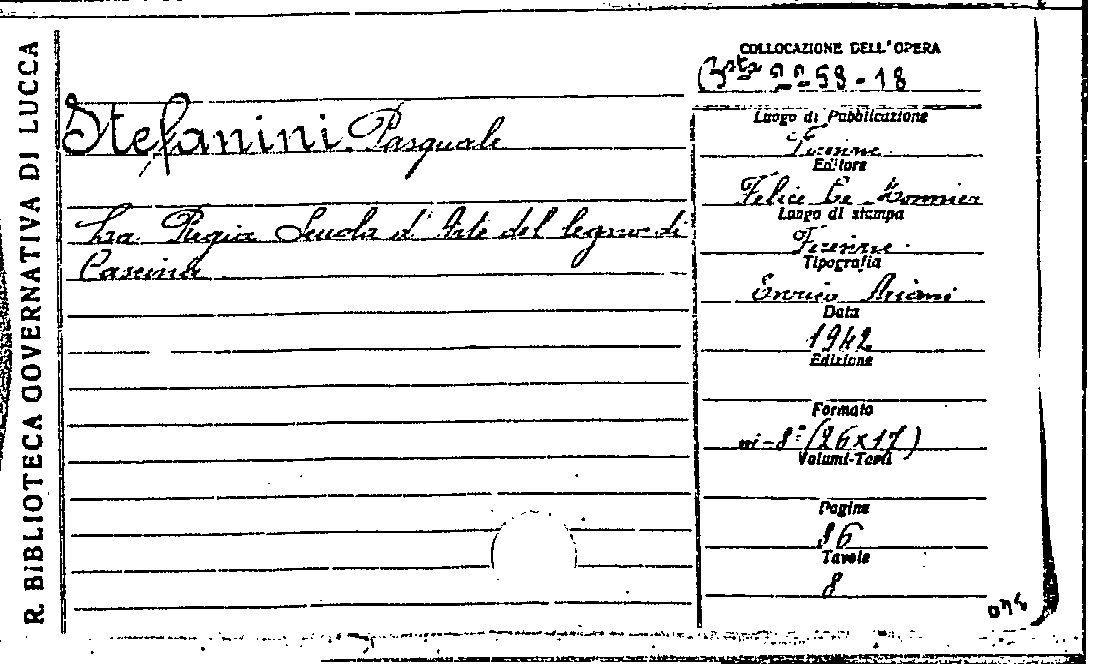 R. BIBLIOTECA GOVERNATIVA DI LUCCA
Stefanini Pasquale
La Regia Scuola d'Arte del legno di
Cascina
COLLOCAZIONE DELL'OPERA
Bsta 2258-18
Luogo di Pubblicazione
Firenze
Editore
Felice Le Monnier
Luogo di stampa
Firenze
Tipografia
Enrico Ariani
Data
1942
Edizione
Formato
in-8° (26x17)
Volumi-Tomi
Pagine
36
Tavole
8